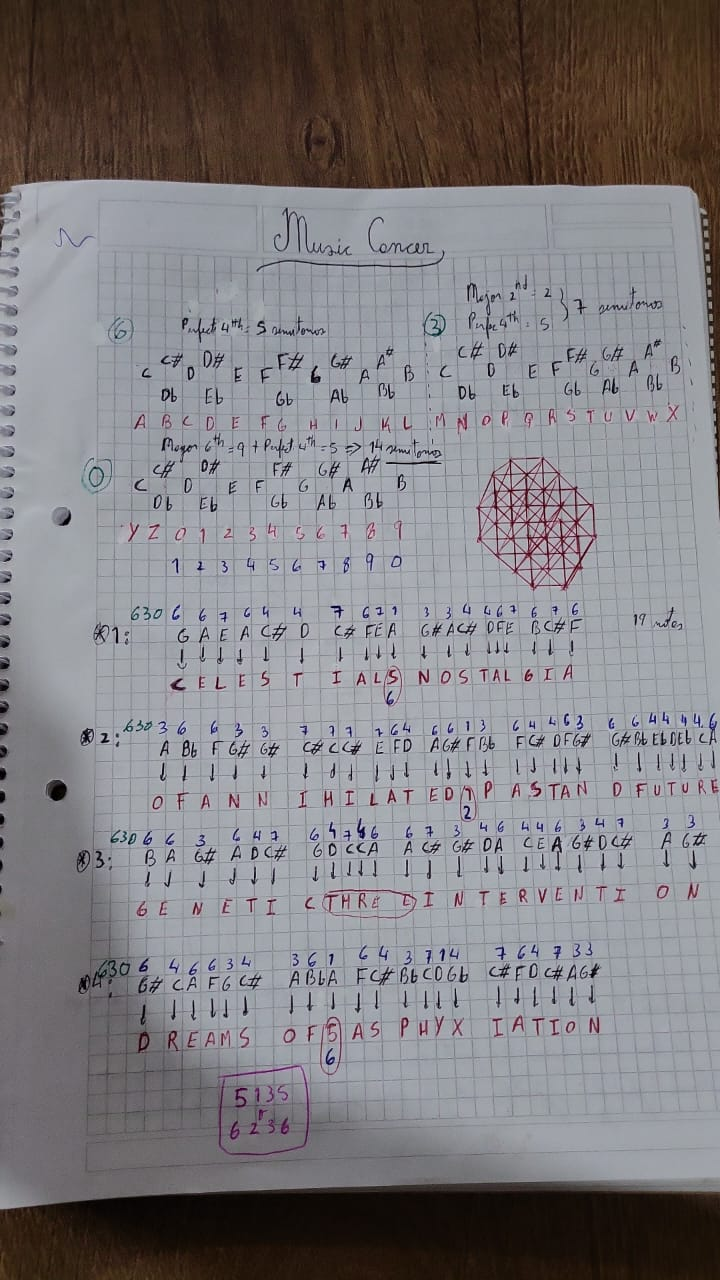 Music Cancer
Major 2nd = 2
Perfect 4th = 5 semitones
Perfec 4th = 5 } 7 semitonos
6
3
C C# D D# E F F# G G# A A# B C C# D D# E F F# G G# A A# B
Db Eb Gb Ab Bb Db Eb Gb Ab Bb
A B C D E F G H I J K L M N O P Q R S T U V W X
Mayor 6th = 9 + Perfect 4th = 5 => 14 semitonos
0
C C# D D# E F F# G G# A A# B
Db Eb Gb Ab Bb
Y Z 0 1 2 3 4 5 6 7 8 9
1 2 3 4 5 6 7 8 9 0
630 6 6 7 6 4 4 7 6 7 1 3 3 4 4 6 7 6 7 6
*1: G A E A C# D C# F E A G# A C# D F E B C# F
19 notes
C E L E S T I A L 5 N O S T A L G I A
6
630 3 6 6 3 3 7 7 7 7 7 6 4 6 6 1 3 6 4 4 6 3 6 6 4 4 4 4 6
*2: A Bb F G# G# C# C C# E F D A G# F Bb F C# D F G# G# Bb Eb D Eb C A
O F A N N I H I L A T E D 1 P A S T A N D F U T U R E
2
630 6 6 3 6 4 7 6 4 7 4 6 6 7 3 4 6 4 4 6 3 4 7 3 3
*3: B A G# A D C# G D C C A A C# G# D A C E A G# D C# A G#
G E N E T I C T H R E E I N T E R V E N T I O N
630 6 4 6 6 3 4 3 6 1 6 4 3 7 1 4 7 6 4 7 3 3
*4: G# C A F G C# A Bb A F C# Bb C D Gb C# F D C# A G#
D R E A M S O F 5 A S P H Y X I A T I O N
6
5 1 3 5
6 2 3 6